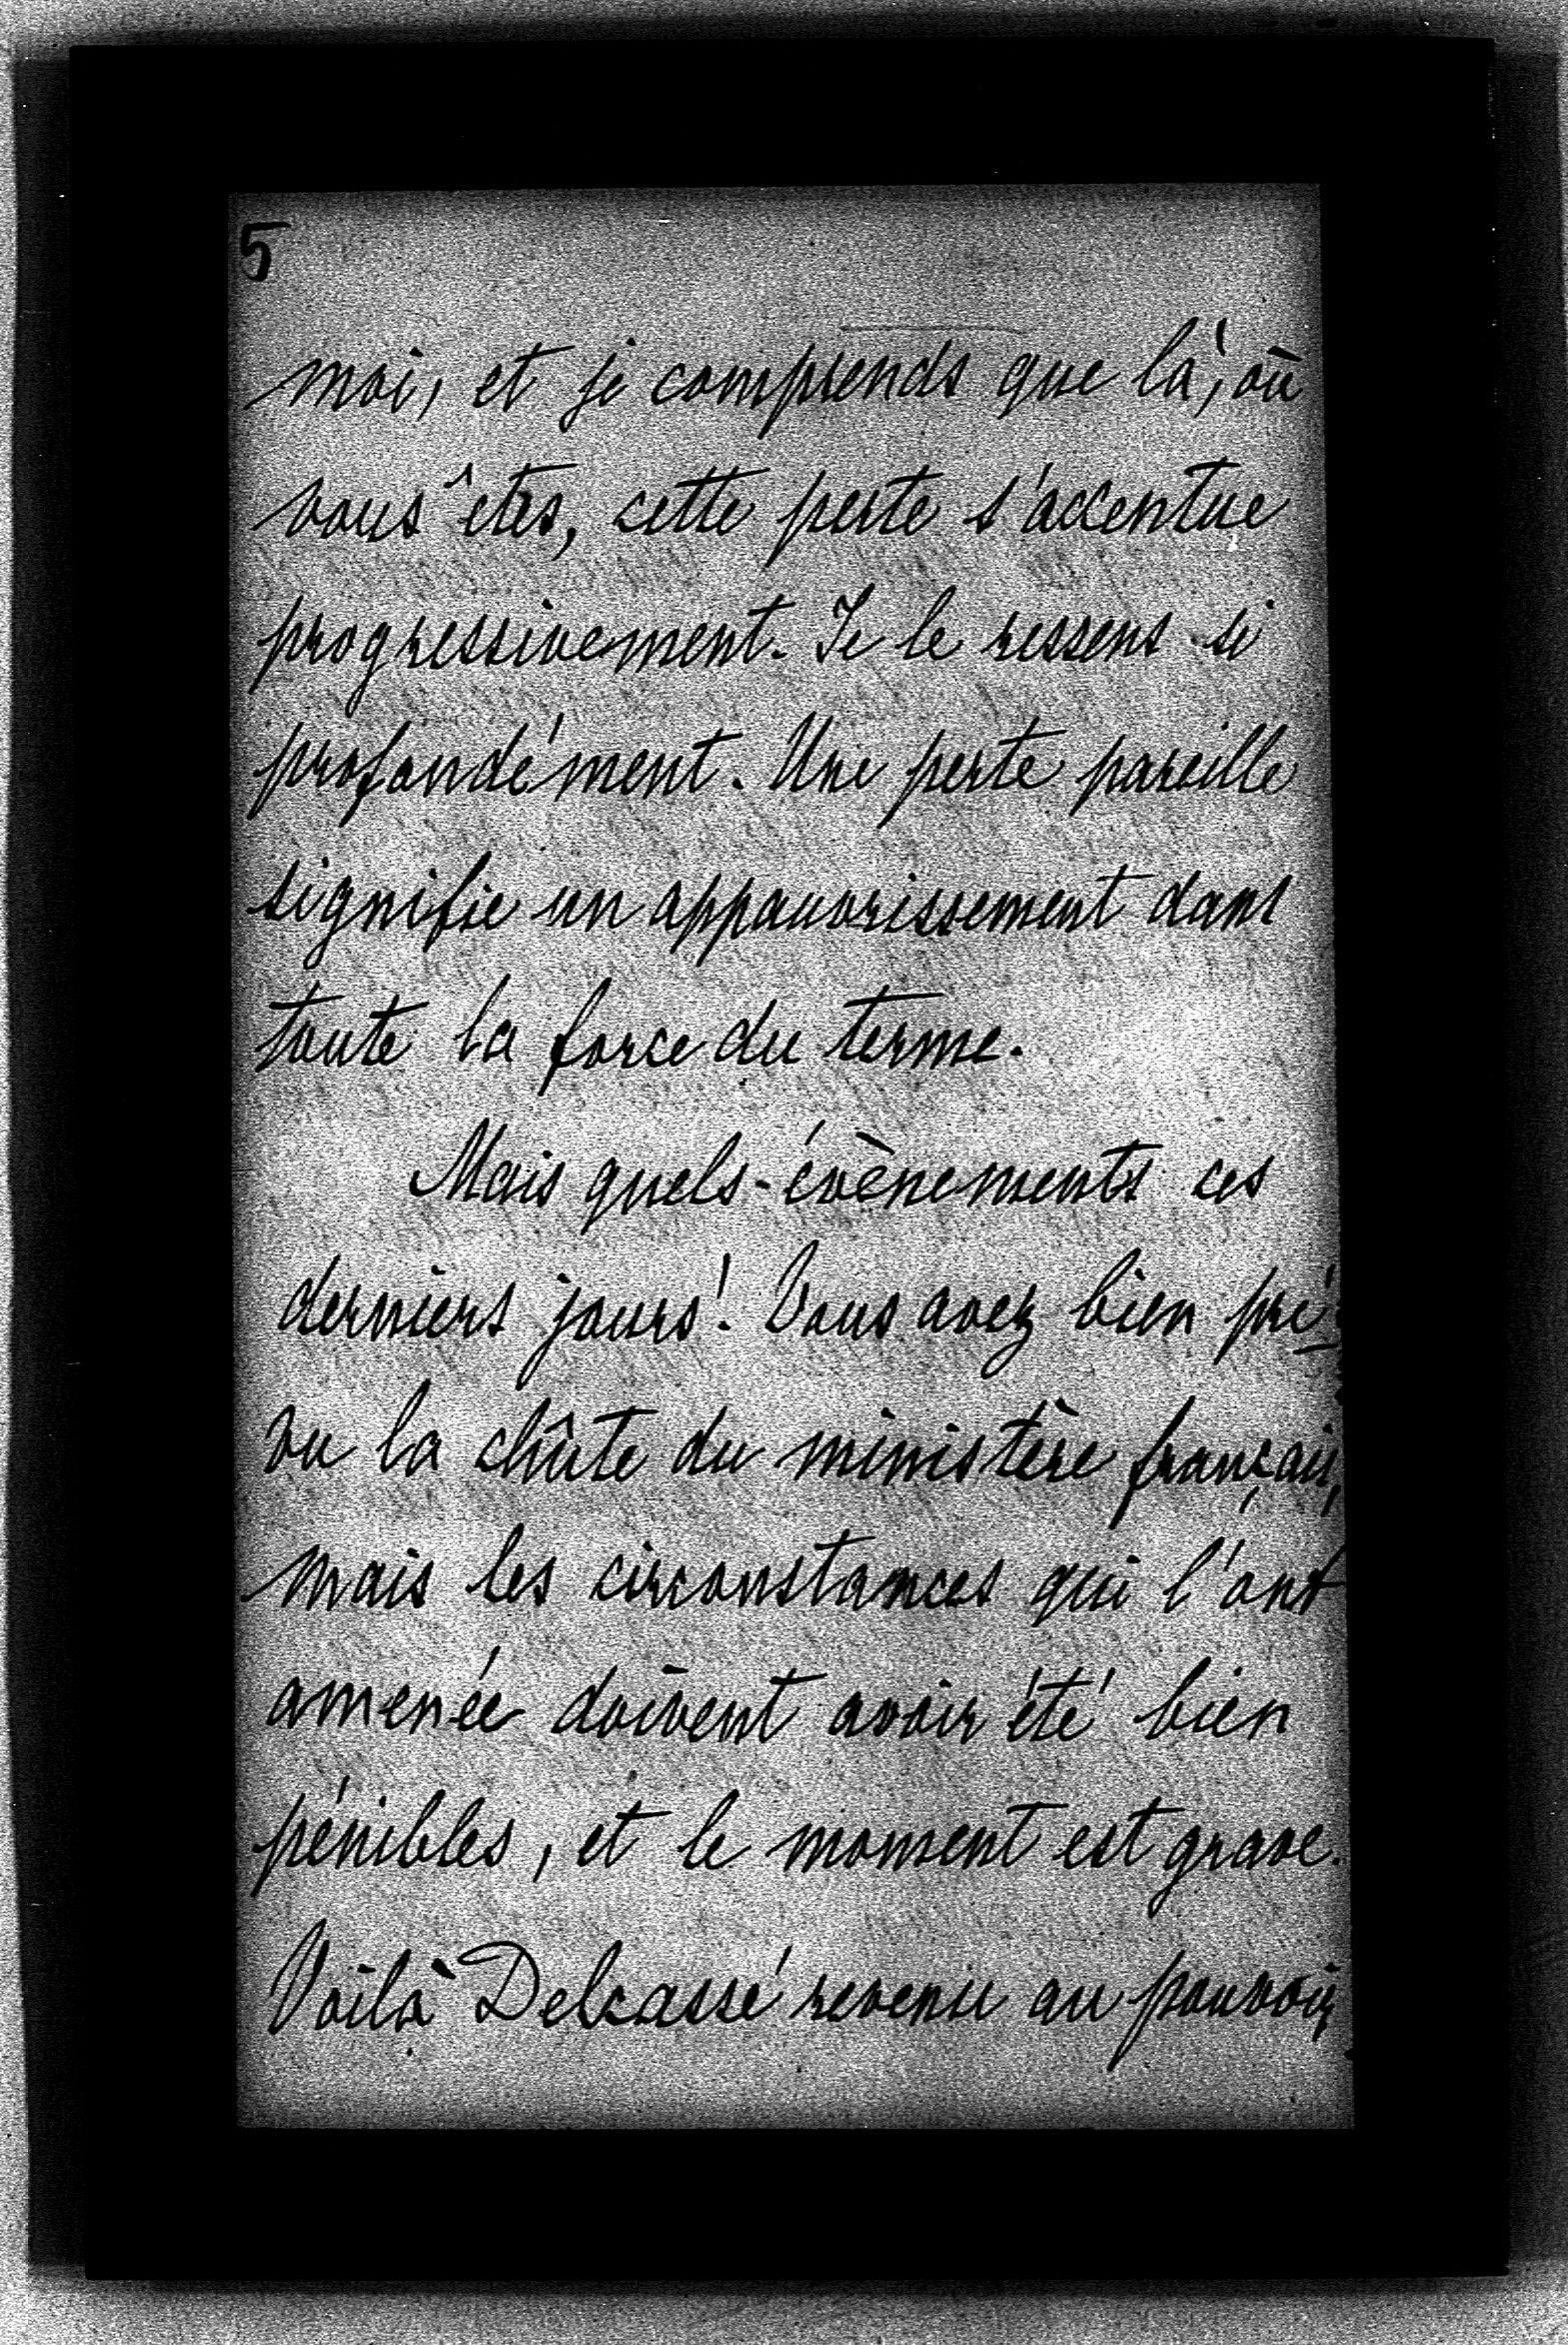 5
moi, et je comprends que là, où
vous êtes, cette perte s'accentue
progressivement. Je le ressens si
profondément. Une perte pareille
signifie un appauvrissement dans
toute la force du terme.
Mais quels évènements ces
derniers jours! Vous avez bien pré-
vu la chûte du ministère français,
mais les circonstances qui l'ont
amenée doivent avoir été bien
pénibles, et le moment est grave.
Voilà Delcassé revenu au pouvoir,